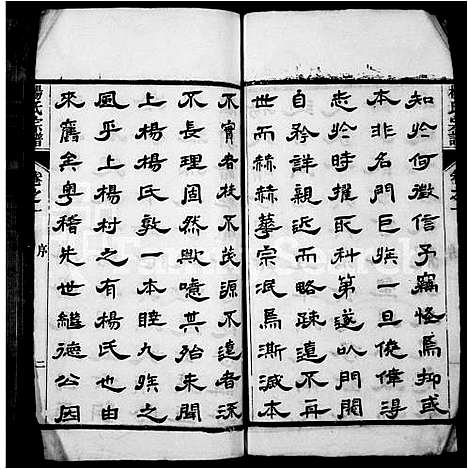 楊氏宗譜
卷之一
知於何徵信予竊怪焉抑或
本非名門巨族一旦僥倖得
志於時擢取科第遂以門閥
自矜詳親近而略疎遠不再
世而赫赫華宗泯焉澌滅本
不實者枝不茂源不遠者流
不長理固然歟噫其殆未聞
上楊楊氏敦一本睦九族之
風乎上楊村之有楊氏也由
來舊矣粵稽先世繼德公因
楊氏宗譜
卷之一
序
二